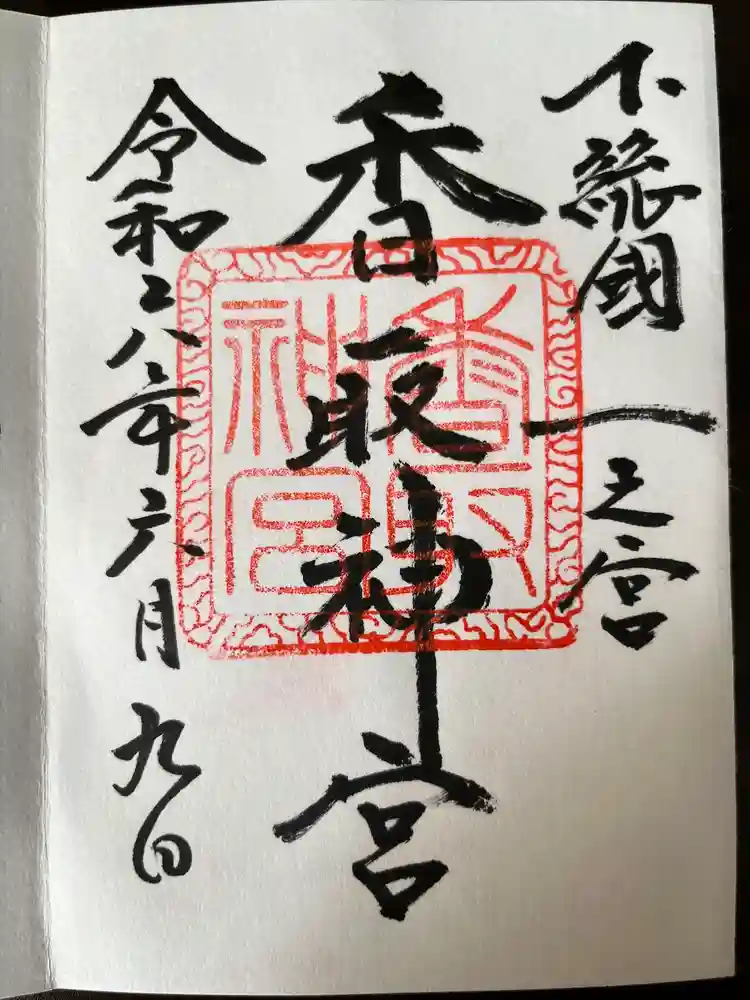 下総國 一之宮
香取神宮
令和六年六月九日
香取神宮